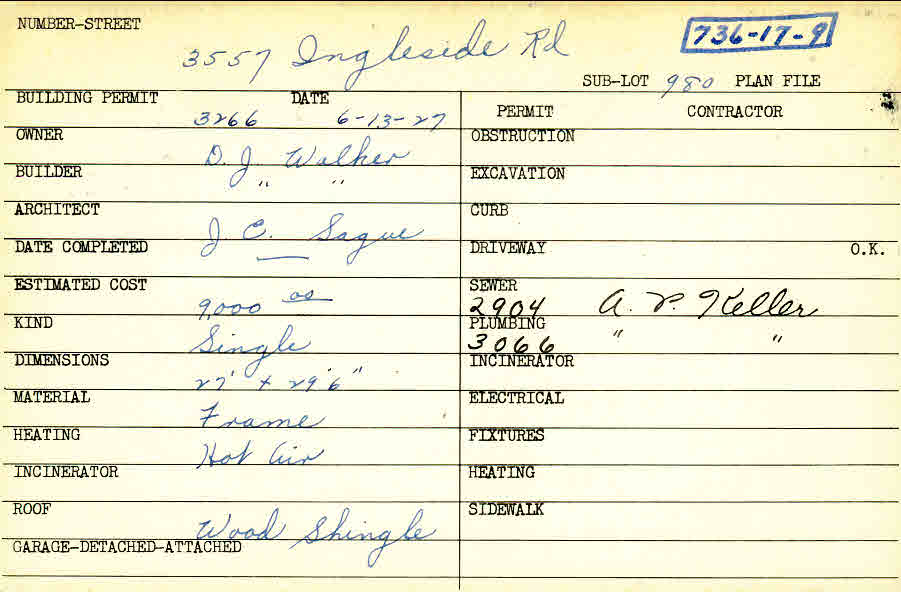 NUMBER-STREET
3557 Ingleside Rd
736-17-9
SUB-LOT 980 PLAN FILE
BUILDING PERMIT DATE
3266 6-13-27
PERMIT CONTRACTOR
OWNER
D. J. Walker
OBSTRUCTION
BUILDER
" "
EXCAVATION
ARCHITECT
J. C. Sague
CURB
DATE COMPLETED
—
DRIVEWAY O.K.
ESTIMATED COST
9,000 00
SEWER
2904 A. P. Keller
KIND
Single
PLUMBING
3066 " "
DIMENSIONS
27' x 29'6"
INCINERATOR
MATERIAL
Frame
ELECTRICAL
HEATING
Hot Air
FIXTURES
INCINERATOR
HEATING
ROOF
Wood Shingle
SIDEWALK
GARAGE-DETACHED-ATTACHED